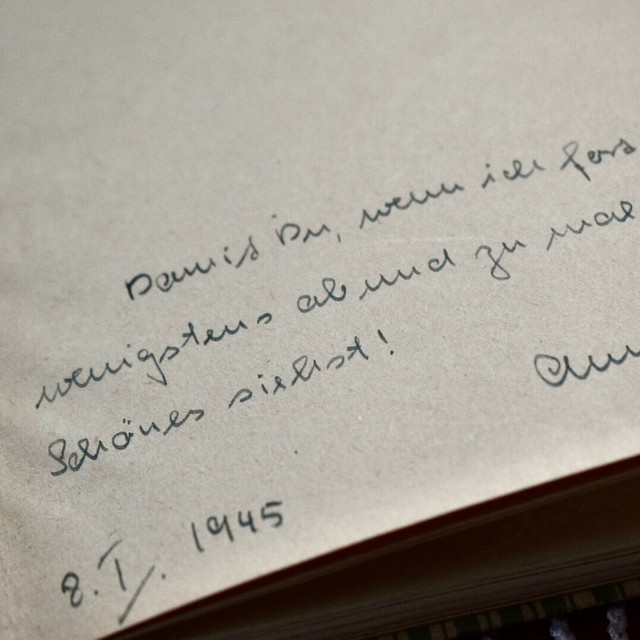 Damit Du, wenn ich for
wenigstens ab und zu mal
Schönes siehst!
8. I. 1945